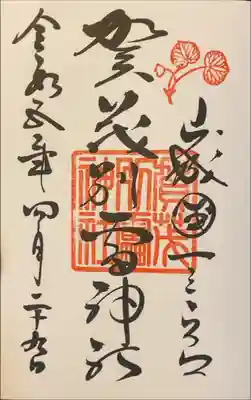 山城國一之宮
賀茂別雷神社
令和五年四月二十九日
賀茂別雷神社